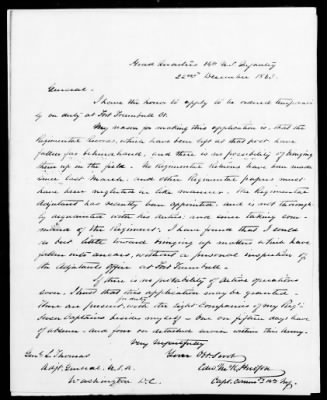 Head Quarters 14th U.S. Infantry
22nd December 1863.
General.
I have the honor to apply to be ordered temporarily
on duty at Fort Trumbull Ct.
My reason for making this application is, that the
Regimental Records, which have been kept at that post have
fallen far behindhand, and there is no possibility of bringing
them up in the field. No Regimental Returns have been made
since last March and other Regimental papers must
have been neglected in like manner. The Regimental
Adjutant has recently been appointed and is not thoroughly
acquainted with his duties, and since taking com-
mand of the Regiment, I have found that I could
do but little toward bringing up matters which have
fallen into arrears, without a personal inspection of
the Adjutants office at Fort Trumbull.
If there is no probability of active operations
soon, I trust that this application may be granted.
There are present for duty with the eight Companies of my Regt.
Seven Captains besides myself. One on fifteen days leave
of absence and four on detached service within this Army.
Very Respectfully
Your Obt Servt
Genl. L. Thomas
Adjt. General U.S.A.
Washington D.C.
Capt. 14th Infy.